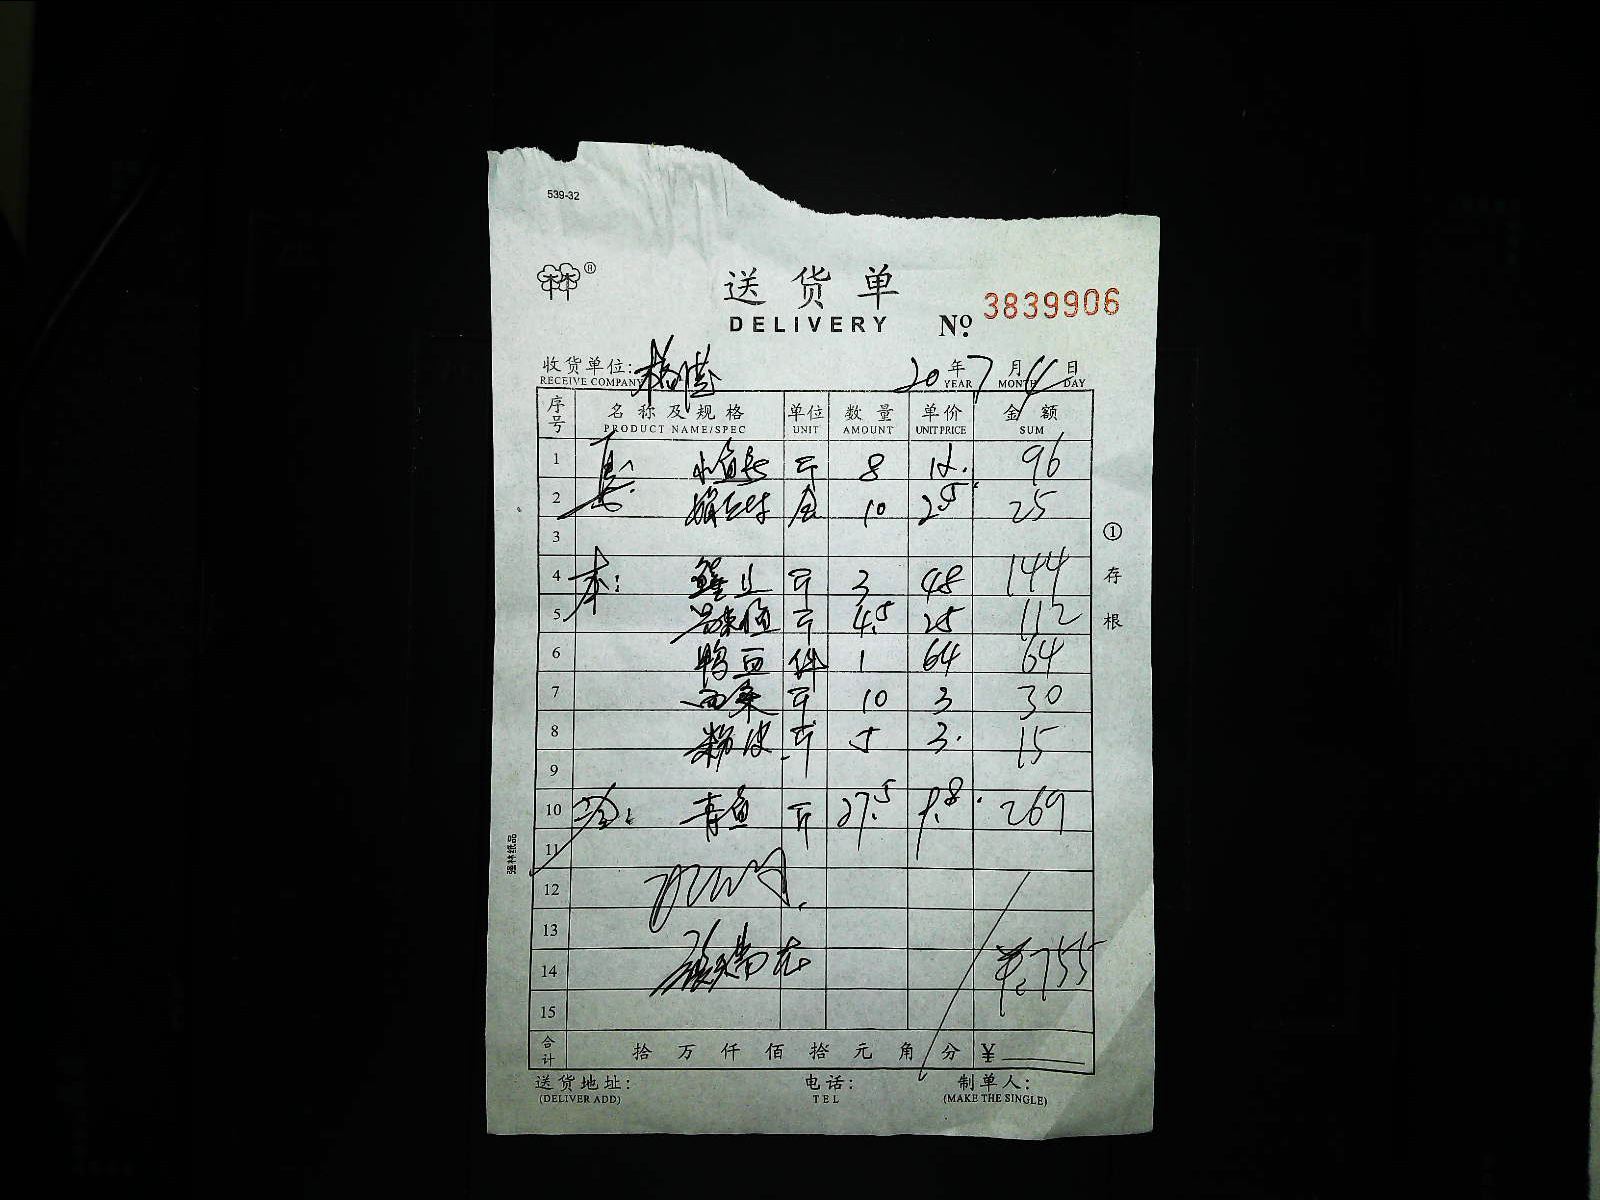 539-32
®
送货单
DELIVERY
№ 3839906
收货单位:
RECEIVE COMPANY
20 年 7 月 日
YEAR MONTH DAY
序号 名称及规格 单位 数量 单价 金额
PRODUCT NAME/SPEC UNIT AMOUNT UNIT PRICE SUM
1 小鱼 斤 8 12. 96
2 10 2.5 25
3
4 本: 斤 3 48 144
5 斤 4.5 25 112
6 鸭血 件 1 64 64
7 斤 10 3 30
8 粉皮 斤 5 3. 15
9
10 青鱼 斤 27.5 9.8 269
11
12
13
14 ¥755
15
合计 拾万仟佰拾元角分 ¥
送货地址: 电话: 制单人:
(DELIVER ADD) TEL (MAKE THE SINGLE)
①存根
强林纸品